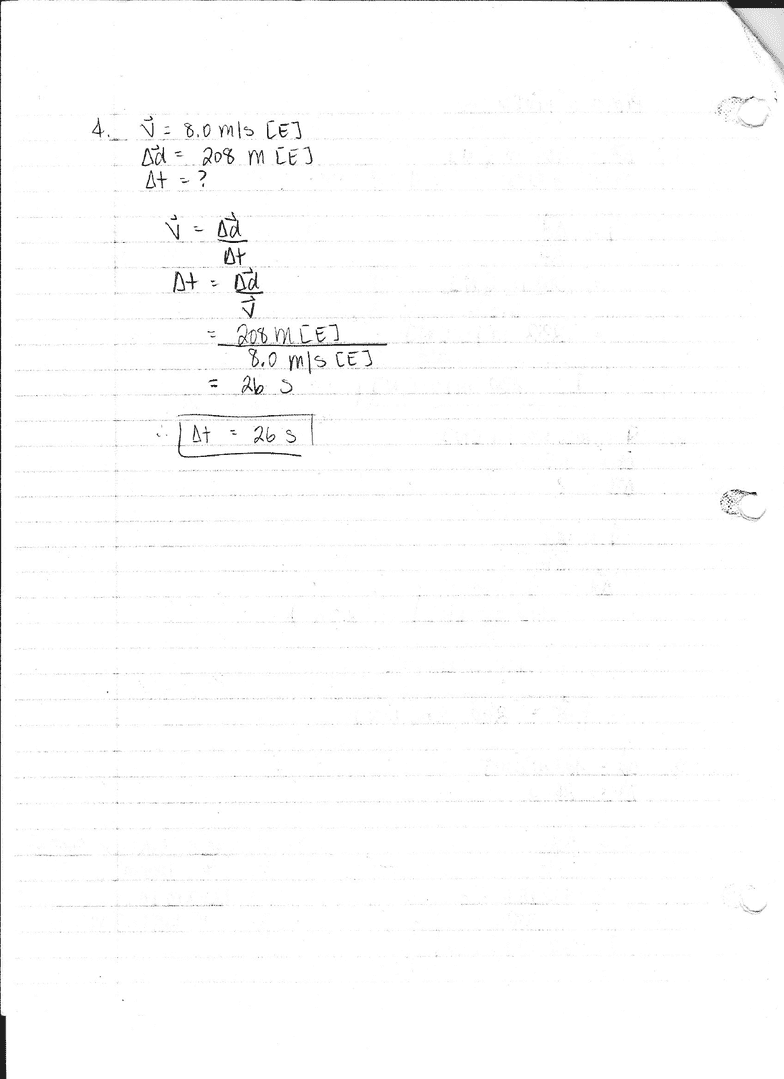 4. v⃗ = 8.0 m/s [E]
Δd⃗ = 208 m [E]
Δt = ?
v⃗ = Δd⃗
Δt
Δt = Δd⃗
v⃗
= 208 m [E]
8.0 m/s [E]
= 26 s
∴ Δt = 26 s